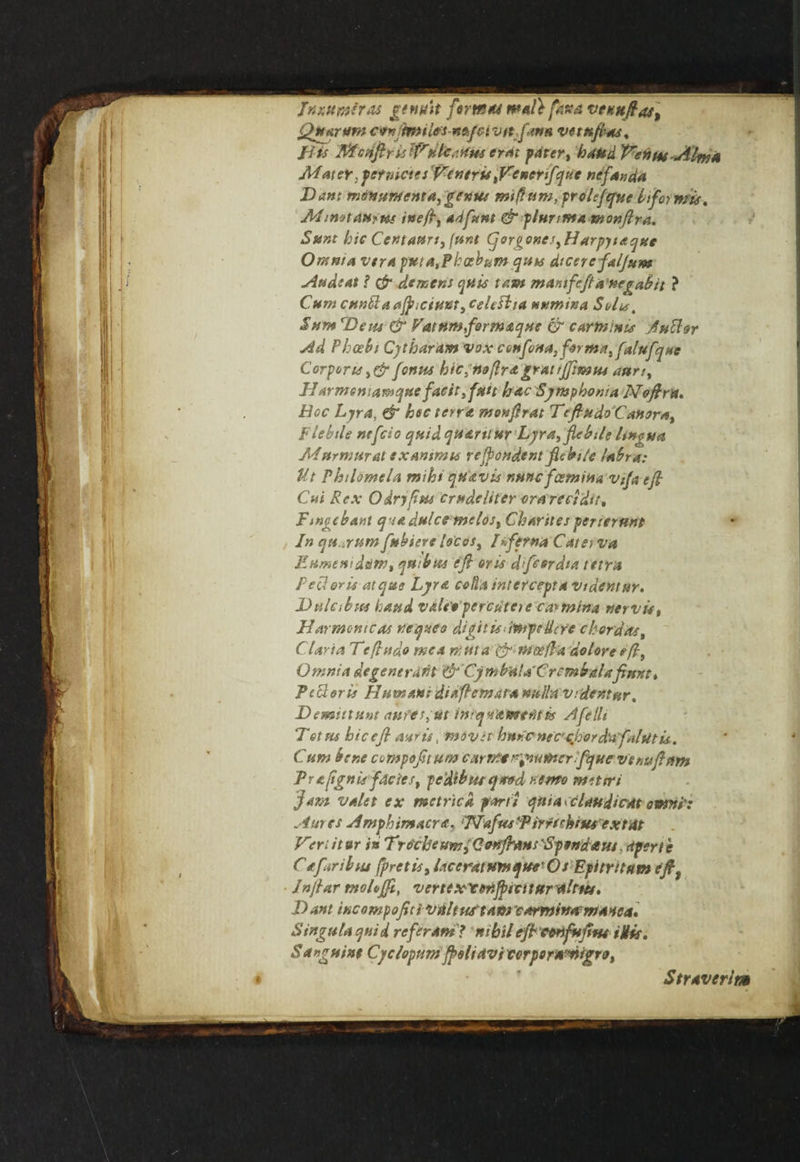 Innumeras genuit formas malè fana venustas,
Quarum consimiles nescivit fana vetustas.
His Monstris Vulcanus erat pater, haud Venus Alma
Mater, pernicies Veneris, Venerisque nefanda
Dant monumenta, genus mistum, prolesque biformis.
Minotaurus inest, adsunt & plurima monstra.
Sunt hic Centauri, sunt Gorgones, Harpyiæque
Omnia vera puta, Phœbum quis dicere falsum
Audeat? & demens quis tam manifesta negabit?
Cum cuncta aspiciunt, celestia numina Solis.
Sum Deus & Vatum, formæque & carminis Auctor
Ad Phœbi Cytharam vox consona, forma, salusque
Corporis, & sonus hic, nostræ gratissimus auri,
Harmoniamque facit, fuit hæc Symphonia Nostra.
Hoc Lyra, & hoc terræ monstrat Testudo Canora,
Flebile nescio quid quæritur Lyra, flebile lingua
Murmurat exanimis respondent flebile labra:
Ut Philomela mihi quævis nunc fœmina visa est
Cui Rex Odrysius crudeliter ora recidit,
Fingebant quæ dulce melos, Charites perierunt
In quarum subiere locos, Inferna Caterva
Eumenidum, quibus est oris discordia tetra
Pectoris atque Lyræ costa intercepta videntur.
Dulcibus haud valeo percutere carmina nervis,
Harmonicas nequeo digitis impellere chordas,
Claria Testudo mea muta & mœsta dolore est,
Omnia degenerant & Cymbala Crembala fiunt.
Pectoris Humani diastemata nulla videntur.
Demittunt aures, ut iniquamentis Aselli
Totus hic est auris, movet hunc nec chorda salutis.
Cum bene compositum carmen, numerisque venustum
Præsignis facies, pedibus quod nemo metiri
Jam valet ex metricâ parti quia claudicat omni:
Aures Amphimacræ, Nasus Pirrichius extat
Vertitur in Trocheum, Constans Spondæus, apertè
Cæsaribus spretis, laceratumque Os Epitritum est,
Instar molossi, vertex conspicitur altus.
Dant incompositi vultus tam carmina manca.
Singula quid referam? nihil est confusius illis.
Sanguine Cyclopum spoliavi corpora nigro,
Straverim